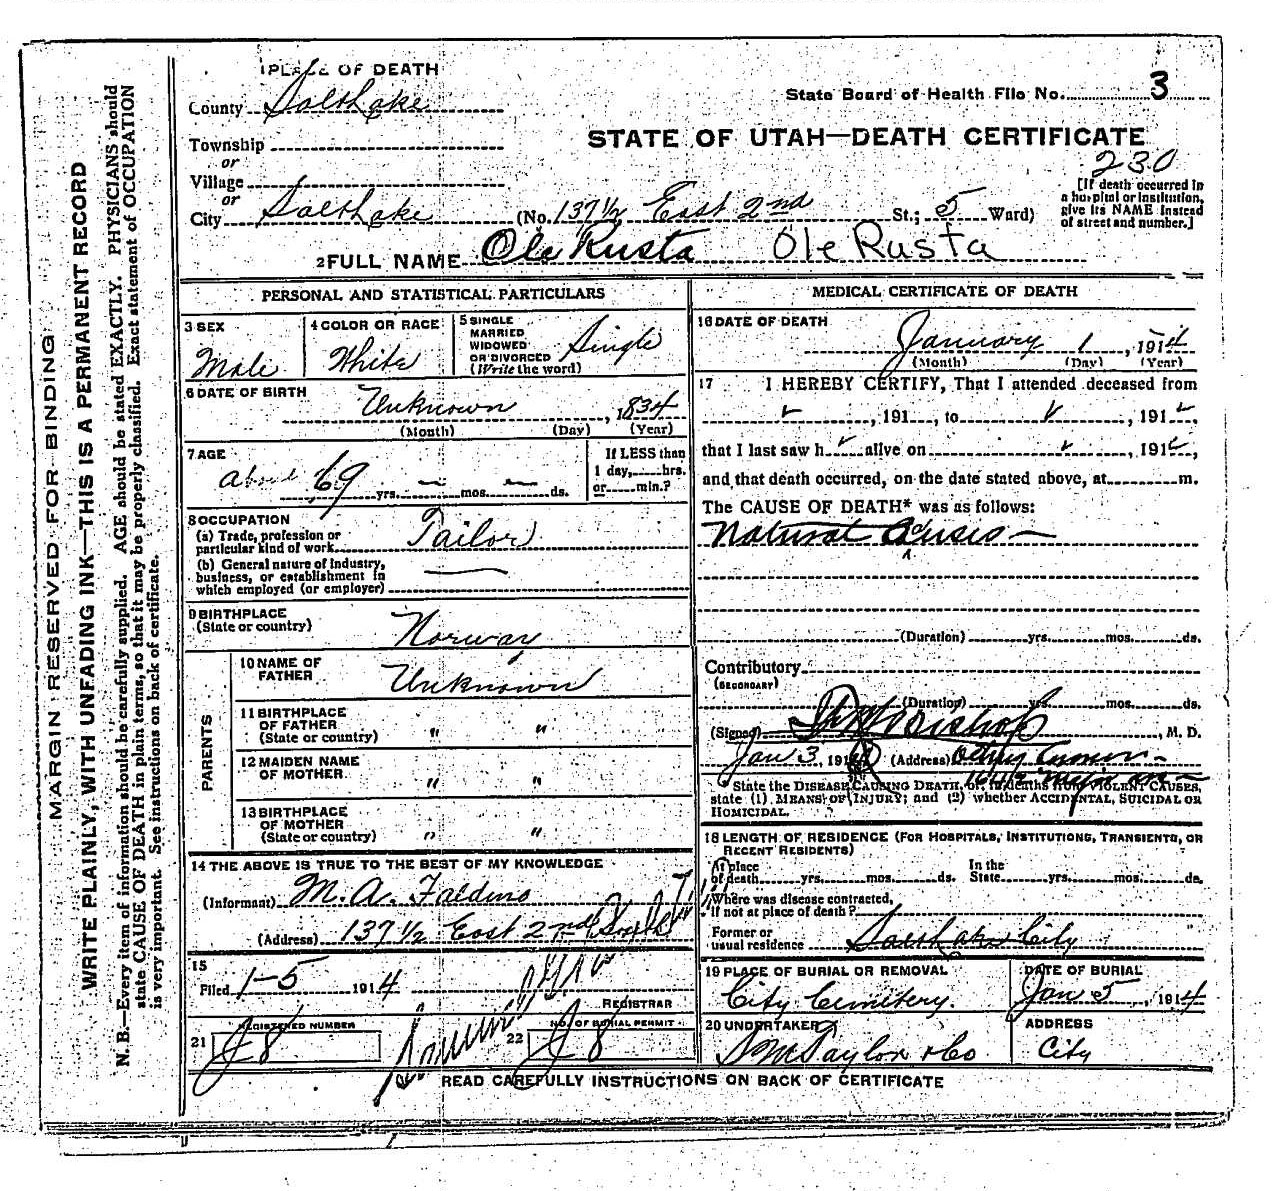 MARGIN RESERVED FOR BINDING
WRITE PLAINLY, WITH UNFADING INK—THIS IS A PERMANENT RECORD
N. B.—Every item of information should be carefully supplied. AGE should be stated EXACTLY. PHYSICIANS should
state CAUSE OF DEATH in plain terms, so that it may be properly classified. Exact statement of OCCUPATION
is very important. See instructions on back of certificate.
1 PLACE OF DEATH
County Salt Lake
State Board of Health File No. 3
Township
or
STATE OF UTAH—DEATH CERTIFICATE
230
Village
or
City Salt Lake (No. 137 1/2 East 2nd St.; 5 Ward)
[If death occurred in
a hospital or institution,
give its NAME instead
of street and number.]
2 FULL NAME Ole Rusta Ole Rusta
PERSONAL AND STATISTICAL PARTICULARS
3 SEX
Male
4 COLOR OR RACE
White
5 SINGLE
MARRIED
WIDOWED
OR DIVORCED
(Write the word)
Single
6 DATE OF BIRTH
Unknown, 1834
(Month) (Day) (Year)
7 AGE
About 69 yrs. — mos. — ds.
If LESS than
1 day,......hrs.
or......min.?
8 OCCUPATION
(a) Trade, profession or
particular kind of work Tailor
(b) General nature of industry,
business, or establishment in
which employed (or employer) —
9 BIRTHPLACE
(State or country) Norway
PARENTS
10 NAME OF
FATHER Unknown
11 BIRTHPLACE
OF FATHER
(State or country) " "
12 MAIDEN NAME
OF MOTHER " "
13 BIRTHPLACE
OF MOTHER
(State or country) " "
14 THE ABOVE IS TRUE TO THE BEST OF MY KNOWLEDGE
(Informant) M. A. Faldmo
(Address) 137 1/2 East 2nd South St
15
Filed 1-5 1914
REGISTRAR
21 REGISTERED NUMBER
J 8
22 NO. OF BURIAL PERMIT
J 8
MEDICAL CERTIFICATE OF DEATH
16 DATE OF DEATH
January 1, 1914
(Month) (Day) (Year)
17 I HEREBY CERTIFY, That I attended deceased from
, 191 , to , 191 ,
that I last saw h alive on , 191 ,
and that death occurred, on the date stated above, at m.
The CAUSE OF DEATH* was as follows:
Natural Causes —
(Duration) yrs. mos. ds.
Contributory
(SECONDARY)
(Duration) yrs. mos. ds.
(Signed) , M. D.
Jan 3, 191 (Address)
State the DISEASE CAUSING DEATH, or, in deaths from VIOLENT CAUSES,
state (1) MEANS OF INJURY; and (2) whether ACCIDENTAL, SUICIDAL OR
HOMICIDAL.
18 LENGTH OF RESIDENCE (FOR HOSPITALS, INSTITUTIONS, TRANSIENTS, OR
RECENT RESIDENTS)
At place
of death yrs. mos. ds.
In the
State yrs. mos. ds.
Where was disease contracted,
if not at place of death?
Former or
usual residence Salt Lake City
19 PLACE OF BURIAL OR REMOVAL
City Cemetery.
DATE OF BURIAL
Jan 5, 1914
20 UNDERTAKER
S M Taylor & Co
ADDRESS
City
READ CAREFULLY INSTRUCTIONS ON BACK OF CERTIFICATE